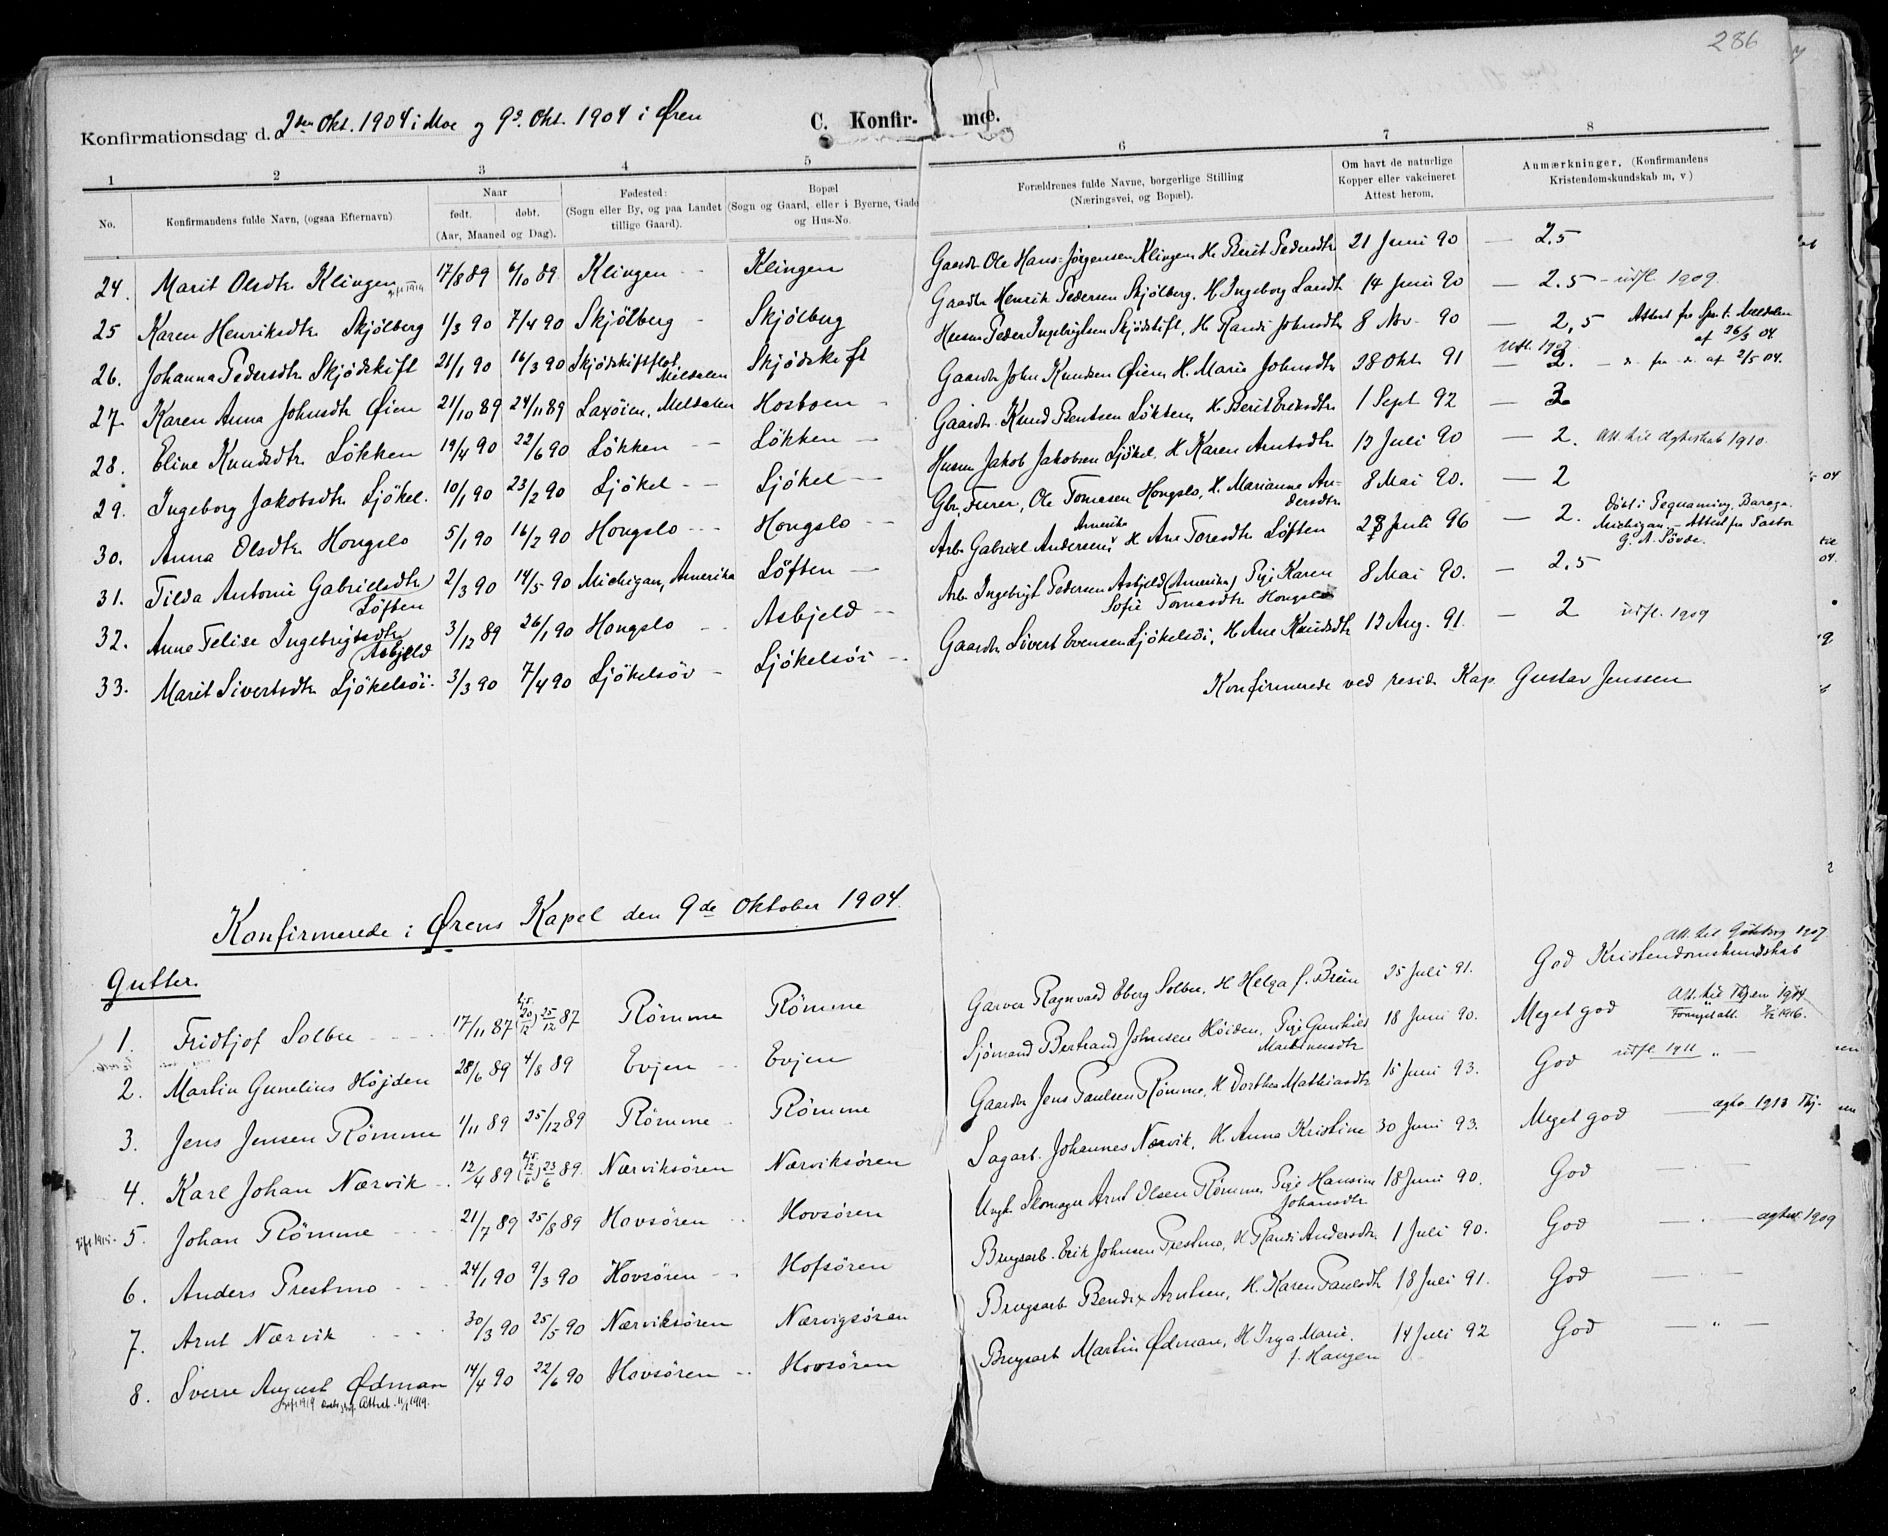 286
Konfirmationsdag d. 2den Okt. 1904 i Moe og 9d. Okt. 1904 i Øren
C. Konfirme.
1 2 3 4 5 6 7 8
No. Konfirmandens fulde Navn, (ogsaa Efternavn) Naar født. døbt. (Aar, Maaned og Dag). Fødested: (Sogn eller By, og paa Landet tillige Gaard). Bopæl (Sogn og Gaard, eller i Byerne, Gade og Hus-No. Forældrenes fulde Navne, borgerlige Stilling (Næringsvei, og Bopæl). Om havt de naturlige Kopper eller vakcineret Attest herom. Anmærkninger, (Konfirmandens Kristendomskundskab m, v)
24. Marit Olsdtr. Klingen 17/8 89 6/10 89 Klingen -- Klingen Gaardr. Ole Hans-Jørgensen Klingen H. Berit Pedersdtr. 21 Juni 90 — 2.5
25 Karen Henriksdtr. Skjølberg 1/3 90 7/4 90 Skjølberg - Skjølberg Gaardr. Henrik Pedersen Skjølberg. H. Ingeborg Larsdtr. 14 Juni 90 — 2.5 - udfl. 1909.
26. Johanna Pedersdtr. Skjødskift 21/1 90 16/3 90 Skjødskiftflot. Meldalen Skjødskift Husm. Peder Ingebrigtsen Skjødskift, H. Randi Johnsdtr. 8 Nov. 90 — 2,5 Attest fra Spr. t. Meldalen af 26/3 04.
27. Karen Anna Johnsdtr. Øien 21/10 89 24/11 89 Laxøien, Meldalen Hosboen - Gaardr. John Knudsen Øien H. Marie Johnsdtr. 28 Okt. 91 — 2. Udfl. 1907 — do. fra do. af 2/5 04.
28. Eline Knudsdtr. Løkken 19/4 90 22/6 90 Løkken -- Løkken — Gaardr. Knud Bentsen Løkken, H. Berit Eriksdtr. 1 Sept 92 — 3
29. Ingeborg Jakobsdtr. Ljøkel. 10/1 90 23/2 90 Ljøkel -- Ljøkel — Husm. Jakob Jakobsen Ljøkel. H. Karen Arntsdtr. 12 Juli 90 — 2. Att. til Ægteskab 1910.
30. Anna Olsdtr. Hongslo 5/1 90 16/2 90 Hongslo --- Hongslo -- Gbr. Furer, Ole Tomesen Hongslo, H. Marianne Andersdtr. 8 Mai 90. — 2
31. Tilda Antonie Gabrielsdtr. Løften 2/3 90 14/5 90 Michigan, Amerika Løften — Arb. Gabriel Andersen, Amerika H. Ane Toresdtr. Løften 28 Juli 96 — 2. Døbt i Pequaming, Baraga. Michigan. - Attest fra Pastor G. A. Søvde.
32. Anne Felise Ingebrigtsdtr. Asbjeld 3/12 89 26/1 90 Hongslo -- Asbjeld -- Arb. Ingebrigt Pedersen Asbjeld (Amerika) Pige Karen Sofie Tomasdtr. Hongslo 8 Mai 90. — 2.5
33. Marit Sivertsdtr. Ljøkelsöi. 3/3 90 7/4 90 Ljøkelsöi - Ljøkelsöi -- Gaardr. Sivert Evensen Ljøkelsöi, H. Ane Knudsdtr. 12 Aug. 91. — 2 udfl. 1909
Konfirmerede ved resid. Kap. Gustav Jenssen
Konfirmerede i Ørens Kapel den 9de Oktober 1904.
Gutter.
1. Fridtjof Solbu ---- 17/11 87 (20/12) 25/12 87 Rømme Rømme Garver Ragnvald Eberg Solbu, H. Helga f. Bruun 25 Juli 91. God Kristendomskundskab Att. til Gøteborg 1907
2. Martin Gunelius Højden 28/6 89 4/8 89 Evjen -- Evjen Sjömand Bertrand Johnsen Höiden, Pige Gunhild Martinusdtr. 18 Juni 90. Meget god
3. Jens Jensen Rømme 1/11 89 25/12 89 Rømme - Rømme Gaardr. Jens Paulsen Rømme, H. Dorthea Mathiasdtr. 15 Juni 93. God udfl. 1911 „ —
4. Karl Johan Nærvik -. 12/4 89 (12/6) 23/6 89. Nærviksören Nærviksören Sagarb. Johannes Nærvik, H. Anna Kristine 30 Juni 93. Meget god
5. Johan Rømme ---- 21/7 89 25/8 89 Hovsören -- Hovsören Ungk. Skomager Arnt Olsen Rømme, Pige Hansine Johansdtr. 18 Juni 90. God
6. Anders Prestmo --- 24/1 90 9/3 90 Hovsören -- Hofsören Brugsarb. Erik Johnsen Prestmo, H. Randi Andersdtr. 1 Juli 90. God
7. Arnt Nærvik ---- 30/3 90 25/5 90 Nærviksören Nærvigsören Brugsarb. Bendix Arntsen, H. Karen Paulsdtr. 18 Juli 91. God
8. Sverre August Ødman 14/4 90 22/6 90 Hovsören -- Hovsören Brugsarb. Martin Ødman, H. Inga Marie. f. Haugen 14 Juli 92 God — „ —